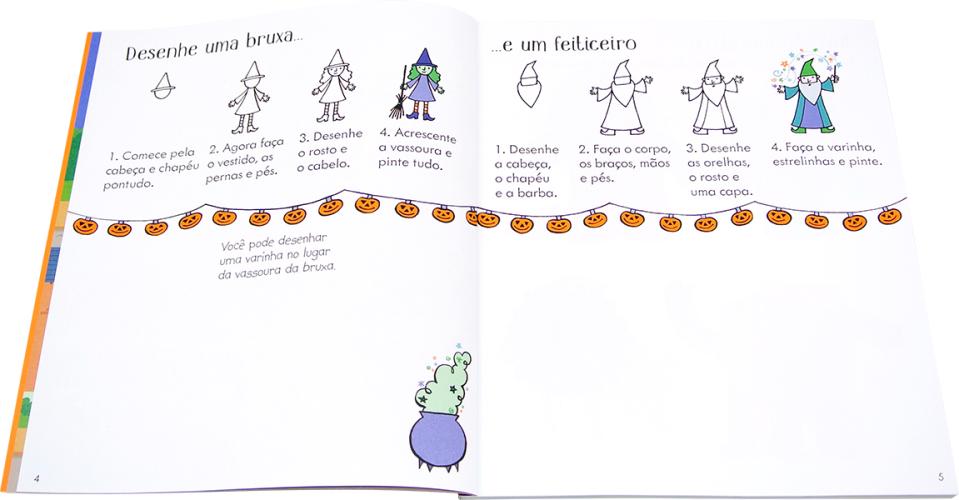 Desenhe uma bruxa...
1. Comece pela
cabeça e chapéu
pontudo.
2. Agora faça
o vestido, as
pernas e pés.
3. Desenhe
o rosto e
o cabelo.
4. Acrescente
a vassoura e
pinte tudo.
Você pode desenhar
uma varinha no lugar
da vassoura da bruxa.
4
...e um feiticeiro
1. Desenhe
a cabeça,
o chapéu
e a barba.
2. Faça o corpo,
os braços, mãos
e pés.
3. Desenhe
as orelhas,
o rosto e
uma capa.
4. Faça a varinha,
estrelinhas e pinte.
5